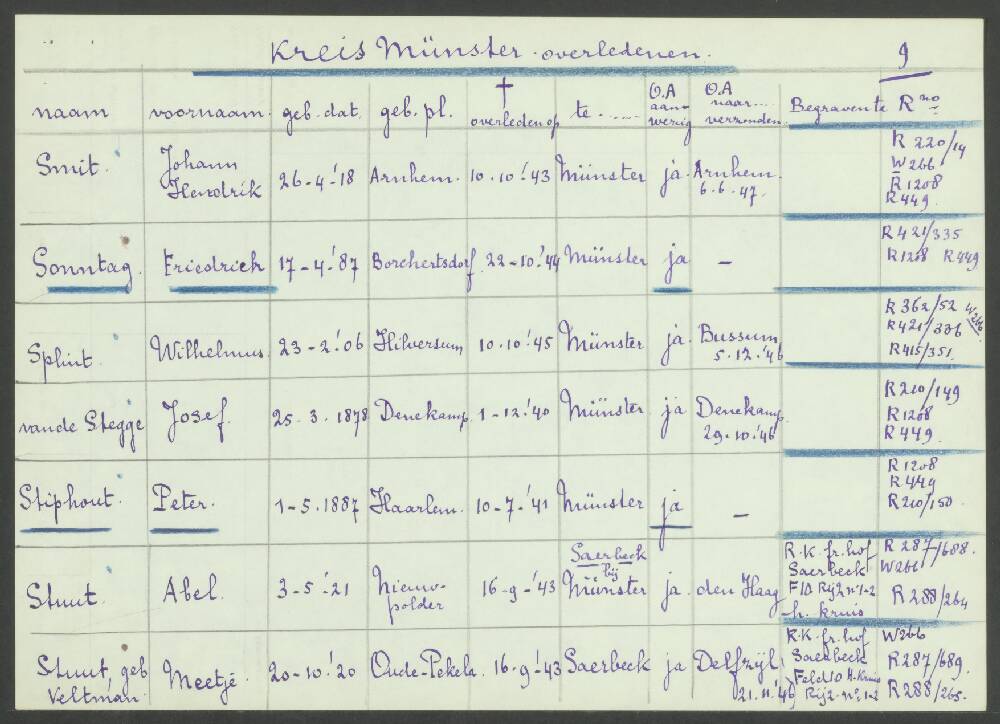 Kreis Münster overledenen. 9
naam voornaam. geb. dat. geb. pl. † overleden op te ...... O.A aanwezig O.A naar... verzonden. Begraven te R no
Smit. Johann Hendrik 26-4-'18 Arnhem. 10-10-'43 Münster ja. Arnhem. 6.6.'47. R 220/14 W266 R1208 R449.
Sonntag. Friedrich 17-4-'87 Borchertsdorf 22-10-'44 Münster ja — R421/335 R1208 R449
Splint. Wilhelmus. 23-2-'06 Hilversum 10-10-'45 Münster ja. Bussum. 5.12.'46 R362/52 W266 R421/336 R415/351.
van de Stegge Josef. 25.3.1878 Denekamp. 1-12-'40 Münster ja Denekamp. 29.10.'46 R210/149 R1208 R449.
Stiphout. Peter. 1-5.1887 Haarlem. 10-7-'41 Münster ja — R1208 R449 R210/150.
Stuut. Abel. 3-5-'21 Nieuw-polder 16-9-'43 Saerbeck bij Münster ja. den Haag R.K. fr. hof Saerbeck F10 Rij 2 nº 1-2 h. kruis R287/688. W266 R288/264
Stuut, geb Veltman. Meetje 20-10-'20 Oude-Pekela. 16-9-'43 Saerbeck ja Delfzijl. 21.11.'46 R.K. fr. hof Saerbeck Feld 10 H. Kruis Rij 2-nº 1-2 W266 R287/689. R288/265.